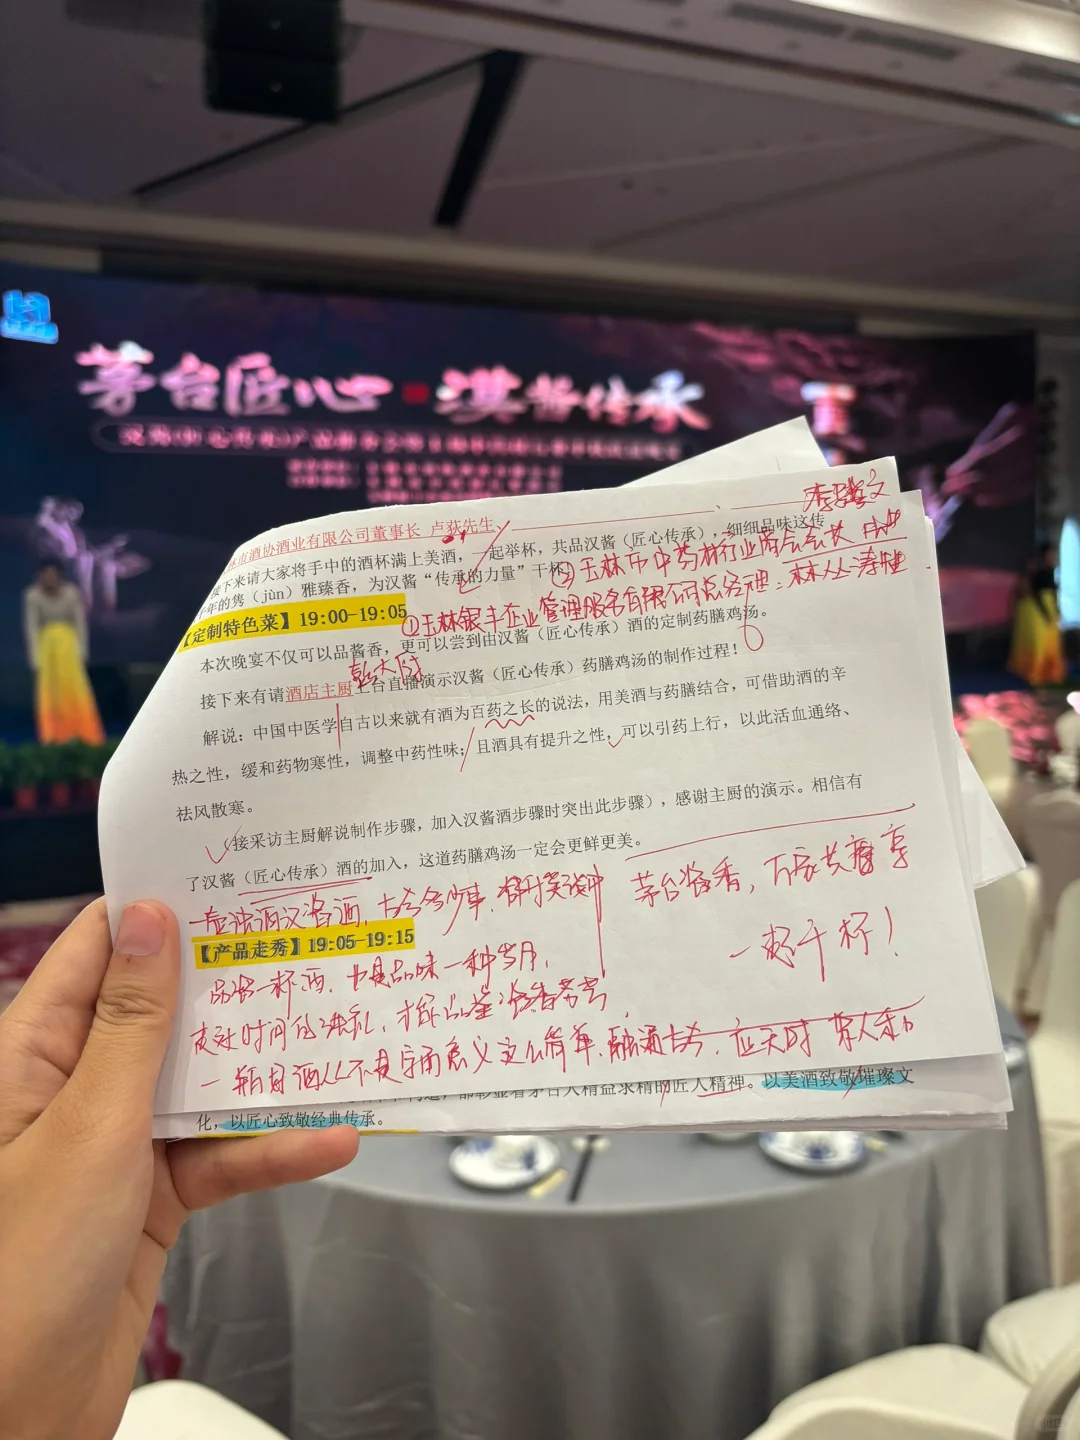 茅台匠心·漢醬传承
李
林市酒协酒业有限公司董事长 卢荻先生
接下来请大家将手中的酒杯满上美酒,一起举杯,共品汉酱(匠心传承),细细品味这传
千年的隽(jùn)雅臻香,为汉酱“传承的力量”干杯
②玉林市中药材行业商会会长
【定制特色菜】19:00-19:05
①玉林银丰企业管理服务有限公司总经理:
本次晚宴不仅可以品酱香,更可以尝到由汉酱(匠心传承)酒的定制药膳鸡汤。
彭大厨
接下来有请酒店主厨上台直播演示汉酱(匠心传承)药膳鸡汤的制作过程!
解说:中国中医学自古以来就有酒为百药之长的说法,用美酒与药膳结合,可借助酒的辛
热之性,缓和药物寒性,调整中药性味;且酒具有提升之性,可以引药上行,以此活血通络、
祛风散寒。
(接采访主厨解说制作步骤,加入汉酱酒步骤时突出此步骤),感谢主厨的演示。相信有
了汉酱(匠心传承)酒的加入,这道药膳鸡汤一定会更鲜更美。
茅台酱香,万家共享
一起干杯!
汉酱酒,古今多少事,都付笑谈中
【产品走秀】19:05-19:15
品味一杯酒,也是品味一种岁月,
时间的
一瓶好酒 不是字面意义这么简单,融通古今,应天时
都彰显着茅台人精益求精的匠人精神。以美酒致敬璀璨文
化,以匠心致敬经典传承。